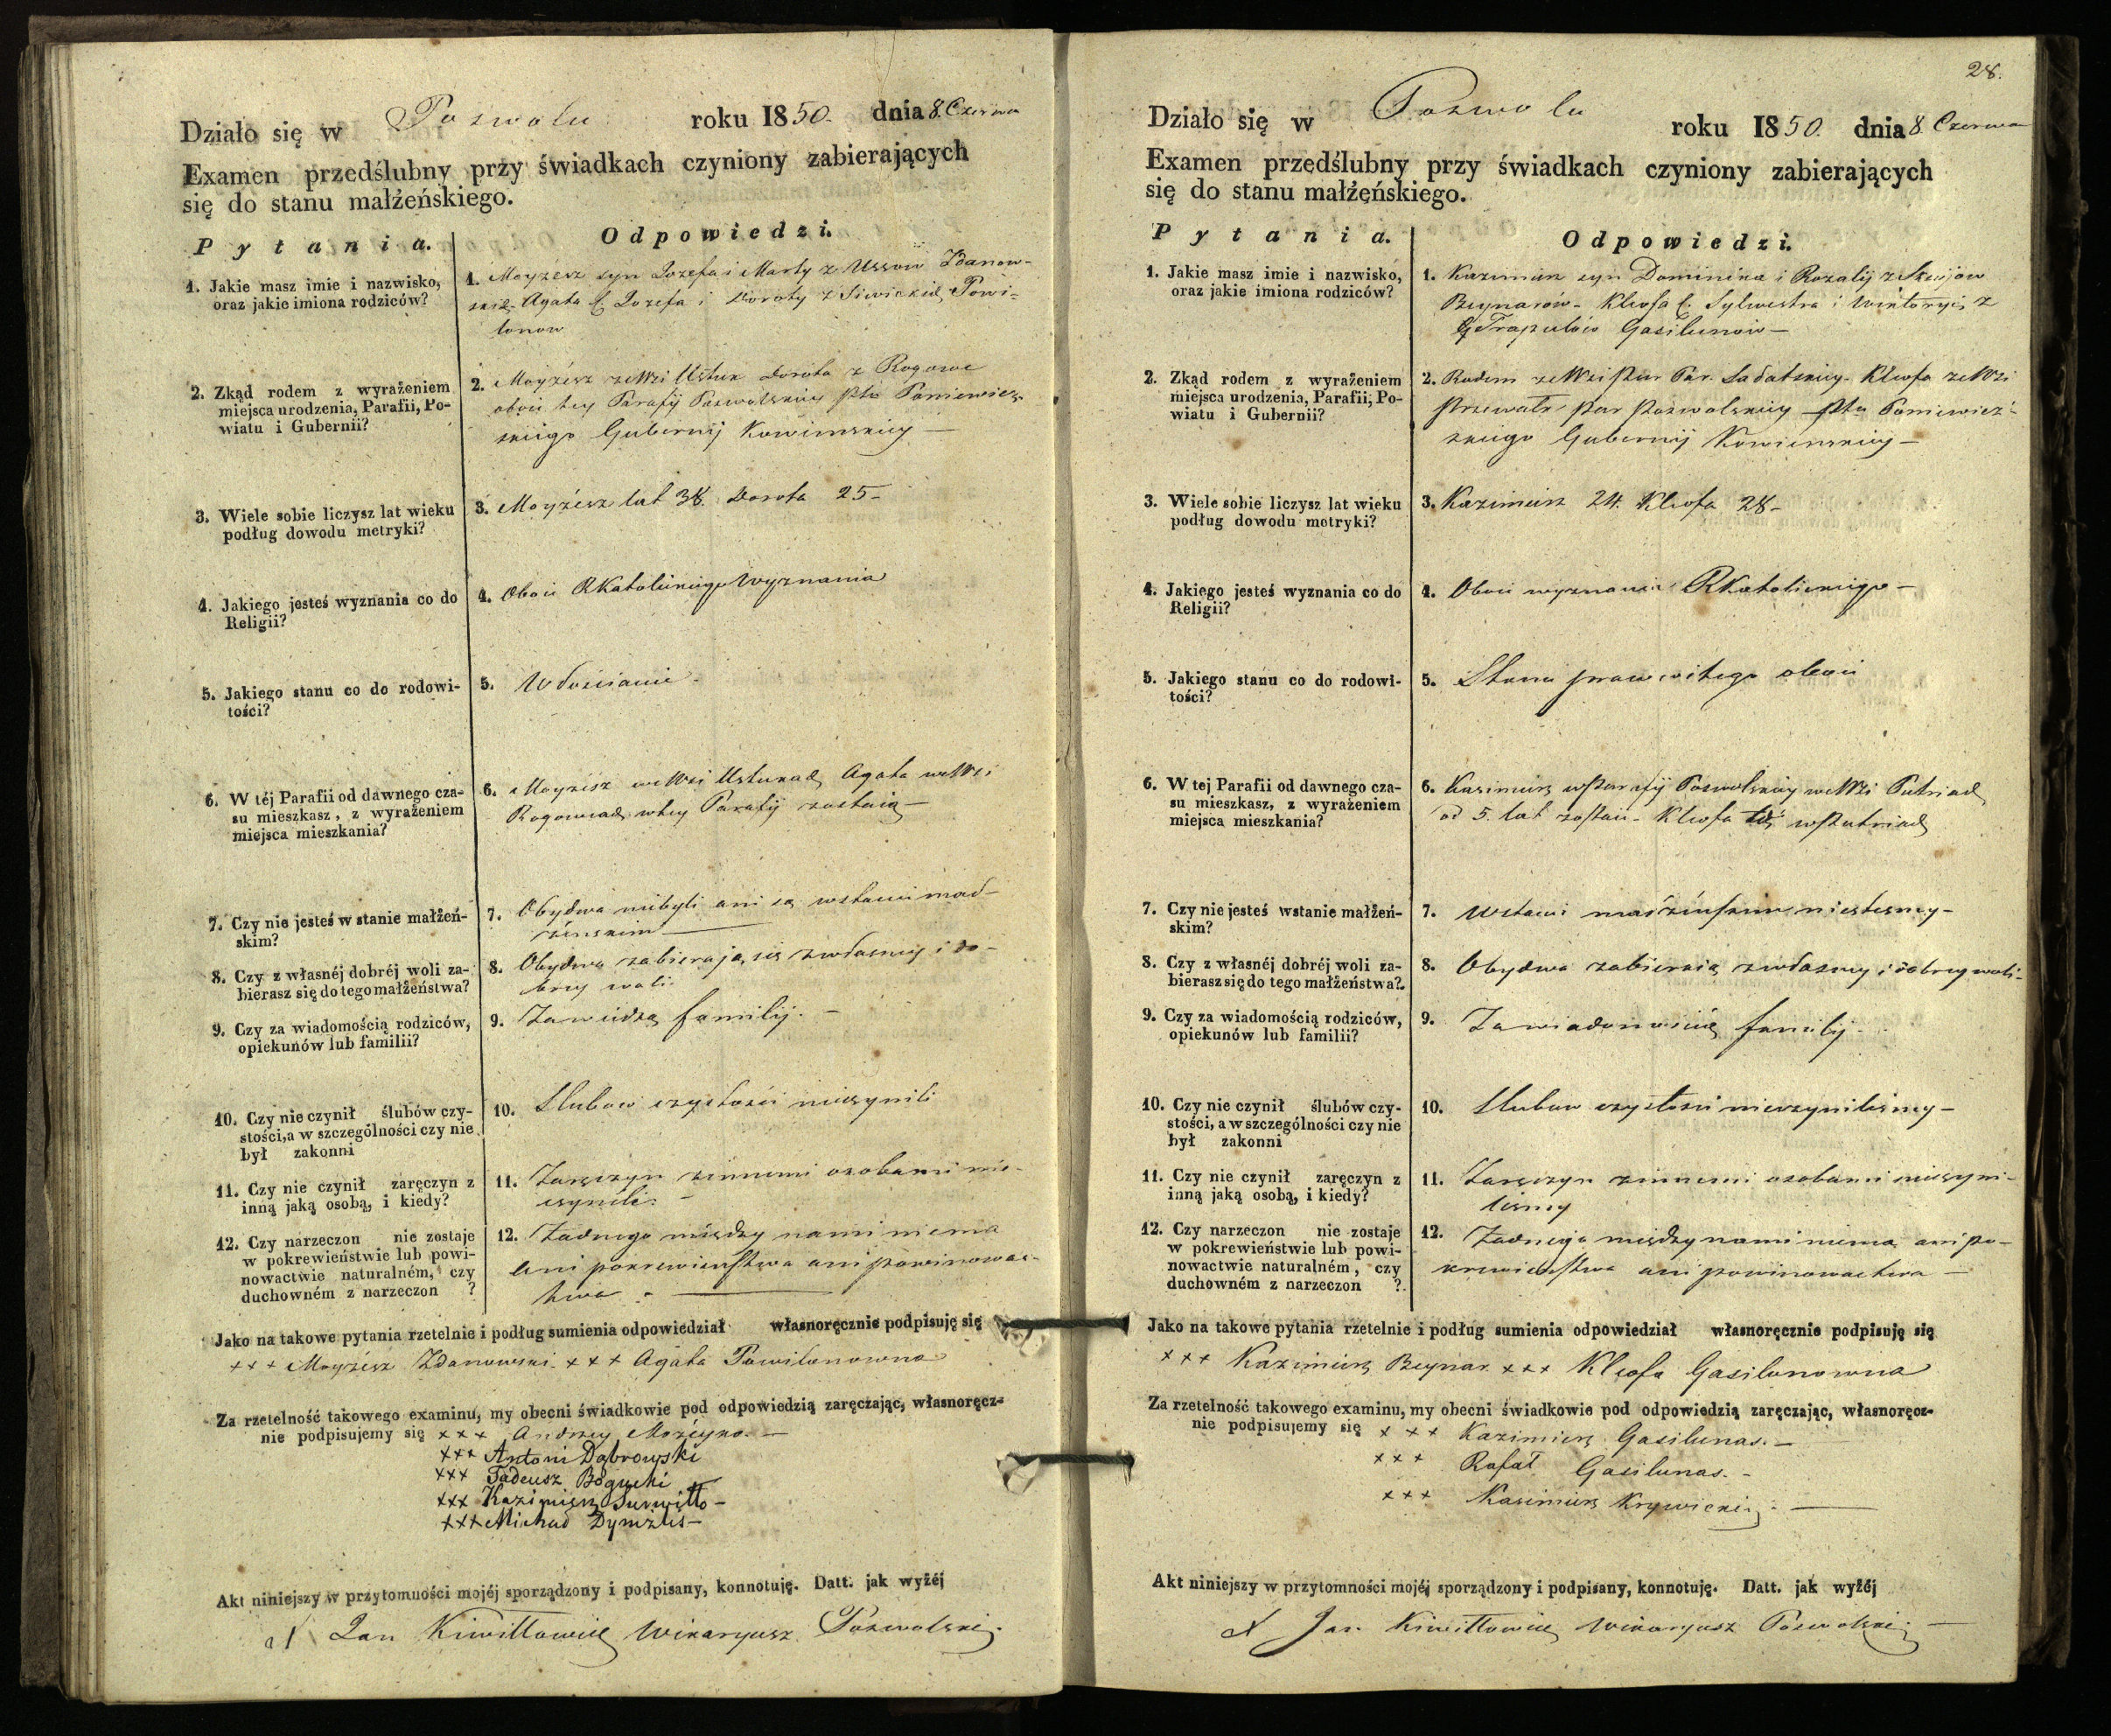 Działo się w Poswolu roku 1850. dnia 8 Czerwca
Examen przedślubny przy świadkach czyniony zabierających
się do stanu małżeńskiego.
Pytania.
Odpowiedzi.
1. Jakie masz imie i nazwisko,
oraz jakie imiona rodziców?
1. Moyżesz syn Jozefa i Marty z Ussow Zdanow-
Agata C. Jozefa i Doroty z Siwickich Powi-
lonow
2. Zkąd rodem z wyrażeniem
miejsca urodzenia, Parafii, Po-
wiatu i Gubernii?
2. Moyżesz zeWsi Ustuk Dorota z Rogowa
oboie tey Parafij Poswolskiey Ptu Poniewież-
skiego Gubernij Kowienskiey —
3. Wiele sobie liczysz lat wieku
podług dowodu metryki?
3. Moyżesz lat 38. Dorota 25 –
4. Jakiego jesteś wyznania co do
Religii?
4. Oboie RKatolickiego Wyznania
5. Jakiego stanu co do rodowi-
tości?
5. Włościanie –
6. W téj Parafii od dawnego cza-
su mieszkasz, z wyrażeniem
miejsca mieszkania?
6. Moyżesz weWsi Ustukach Agata weWsi
Rogowiach wtey Parafij zostaią —
7. Czy nie jesteś w stanie małżeń-
skim?
7. Obydwa niebyli ani są wstanie mał-
żeńskim —
8. Czy z własnéj dobréj woli za-
bierasz się do tego małżeństwa?
8. Obydwa zabierają się zwłasney i do-
brey woli.
9. Czy za wiadomością rodziców,
opiekunów lub familii?
9. Zawiedzą familij. –
10. Czy nie czynił ślubów czy-
stości, a w szczególności czy nie
był zakonni
10. Slubow czystości nieczynili
11. Czy nie czynił zaręczyn z
inną jaką osobą, i kiedy?
11. Zaręczyn zinnemi osobami nie-
czynili. –
12. Czy narzeczon nie zostaje
w pokrewieństwie lub powi-
nowactwie naturalném, czy
duchowném z narzeczon ?
12. Żadnego między nami niema
ani pokrewieństwa ani powinowac-
twa. —
Jako na takowe pytania rzetelnie i podług sumienia odpowiedział własnoręcznie podpisuję się
+++ Moyżesz Zdanowski. +++ Agata Powilonowna
Za rzetelność takowego examinu, my obecni świadkowie pod odpowiedzią zaręczając, własnoręcz-
nie podpisujemy się +++ Andrzey Możeyko. —
+++ Antoni Dąbrowski
+++ Tadeusz Bogucki
+++ Kazimierz Surwiłło –
+++ Michał Dymżis –
Akt niniejszy w przytomności mojéj sporządzony i podpisany, konnotuję. Datt. jak wyżéj
X Jan Kiwiłłowicz Wikaryusz Poswolski.
28.
Działo się w Poswolu roku 1850. dnia 8. Czerwca
Examen przedślubny przy świadkach czyniony zabierających
się do stanu małżeńskiego.
Pytania.
Odpowiedzi.
1. Jakie masz imie i nazwisko,
oraz jakie imiona rodziców?
1. Kazimierz syn Dominika i Rozalij z
Beynarów – Kleofa C. Sylwestra i Wiktoryi z
Trapulów Gasilunow —
2. Zkąd rodem z wyrażeniem
miejsca urodzenia, Parafii, Po-
wiatu i Gubernii?
2. Rodem zeWsi Par. Sałatskiey – Kleofa zeWsi
par poswolskiey Ptu Poniewież-
skiego Gubernij Kowienskiey —
3. Wiele sobie liczysz lat wieku
podług dowodu metryki?
3. Kazimierz 24. Kleofa 28 –
4. Jakiego jesteś wyznania co do
Religii?
4. Oboie wyznania RKatolickiego –
5. Jakiego stanu co do rodowi-
tości?
5. Stanu prawowitego oboie
6. W tej Parafii od dawnego cza-
su mieszkasz, z wyrażeniem
miejsca mieszkania?
6. Kazimierz wParafij Poswolskiey weWsi Putriach
od 5. lat zostaie – Kleofa też wPutriach
7. Czy nie jesteś wstanie małżeń-
skim?
7. Wstanie małżeńskim niejestesmy –
8. Czy z własnéj dobréj woli za-
bierasz się do tego małżeństwa?
8. Obydwa zabieraią zwłasney i dobrey woli –
9. Czy za wiadomością rodziców,
opiekunów lub familii?
9. Zawiadomością familij –
10. Czy nie czynił ślubów czy-
stości, a w szczególności czy nie
był zakonni
10. Slubow czystości nieczynilismy –
11. Czy nie czynił zaręczyn z
inną jaką osobą, i kiedy?
11. Zaręczyn zinnemi osobami nieczyni-
lismy
12. Czy narzeczon nie zostaje
w pokrewieństwie lub powi-
nowactwie naturalném, czy
duchowném z narzeczon ?
12. Żadnego między nami niema ani po-
krewieństwa ani powinowactwa —
Jako na takowe pytania rzetelnie i podług sumienia odpowiedział własnoręcznie podpisuję się
+++ Kazimierz Beynar +++ Kleofa Gasilunowna
Za rzetelność takowego examinu, my obecni świadkowie pod odpowiedzią zaręczając, własnoręcz-
nie podpisujemy się +++ Kazimierz Gasilunas. –
+++ Rafał Gasilunas. –
+++ Kazimierz Krywicki. —
Akt niniejszy w przytomności mojéj sporządzony i podpisany, konnotuję. Datt. jak wyżéj
X Jan Kiwiłłowicz Wikaryusz Poswolski. —